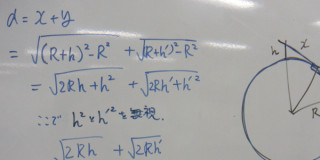 d = x + y
= √((R+h)²-R²) + √((R+h')²-R²)
= √(2Rh+h²) + √(2Rh'+h'²)
ここで h²とh'²を無視.
√(2Rh) + √(2Rh')
h
x
R